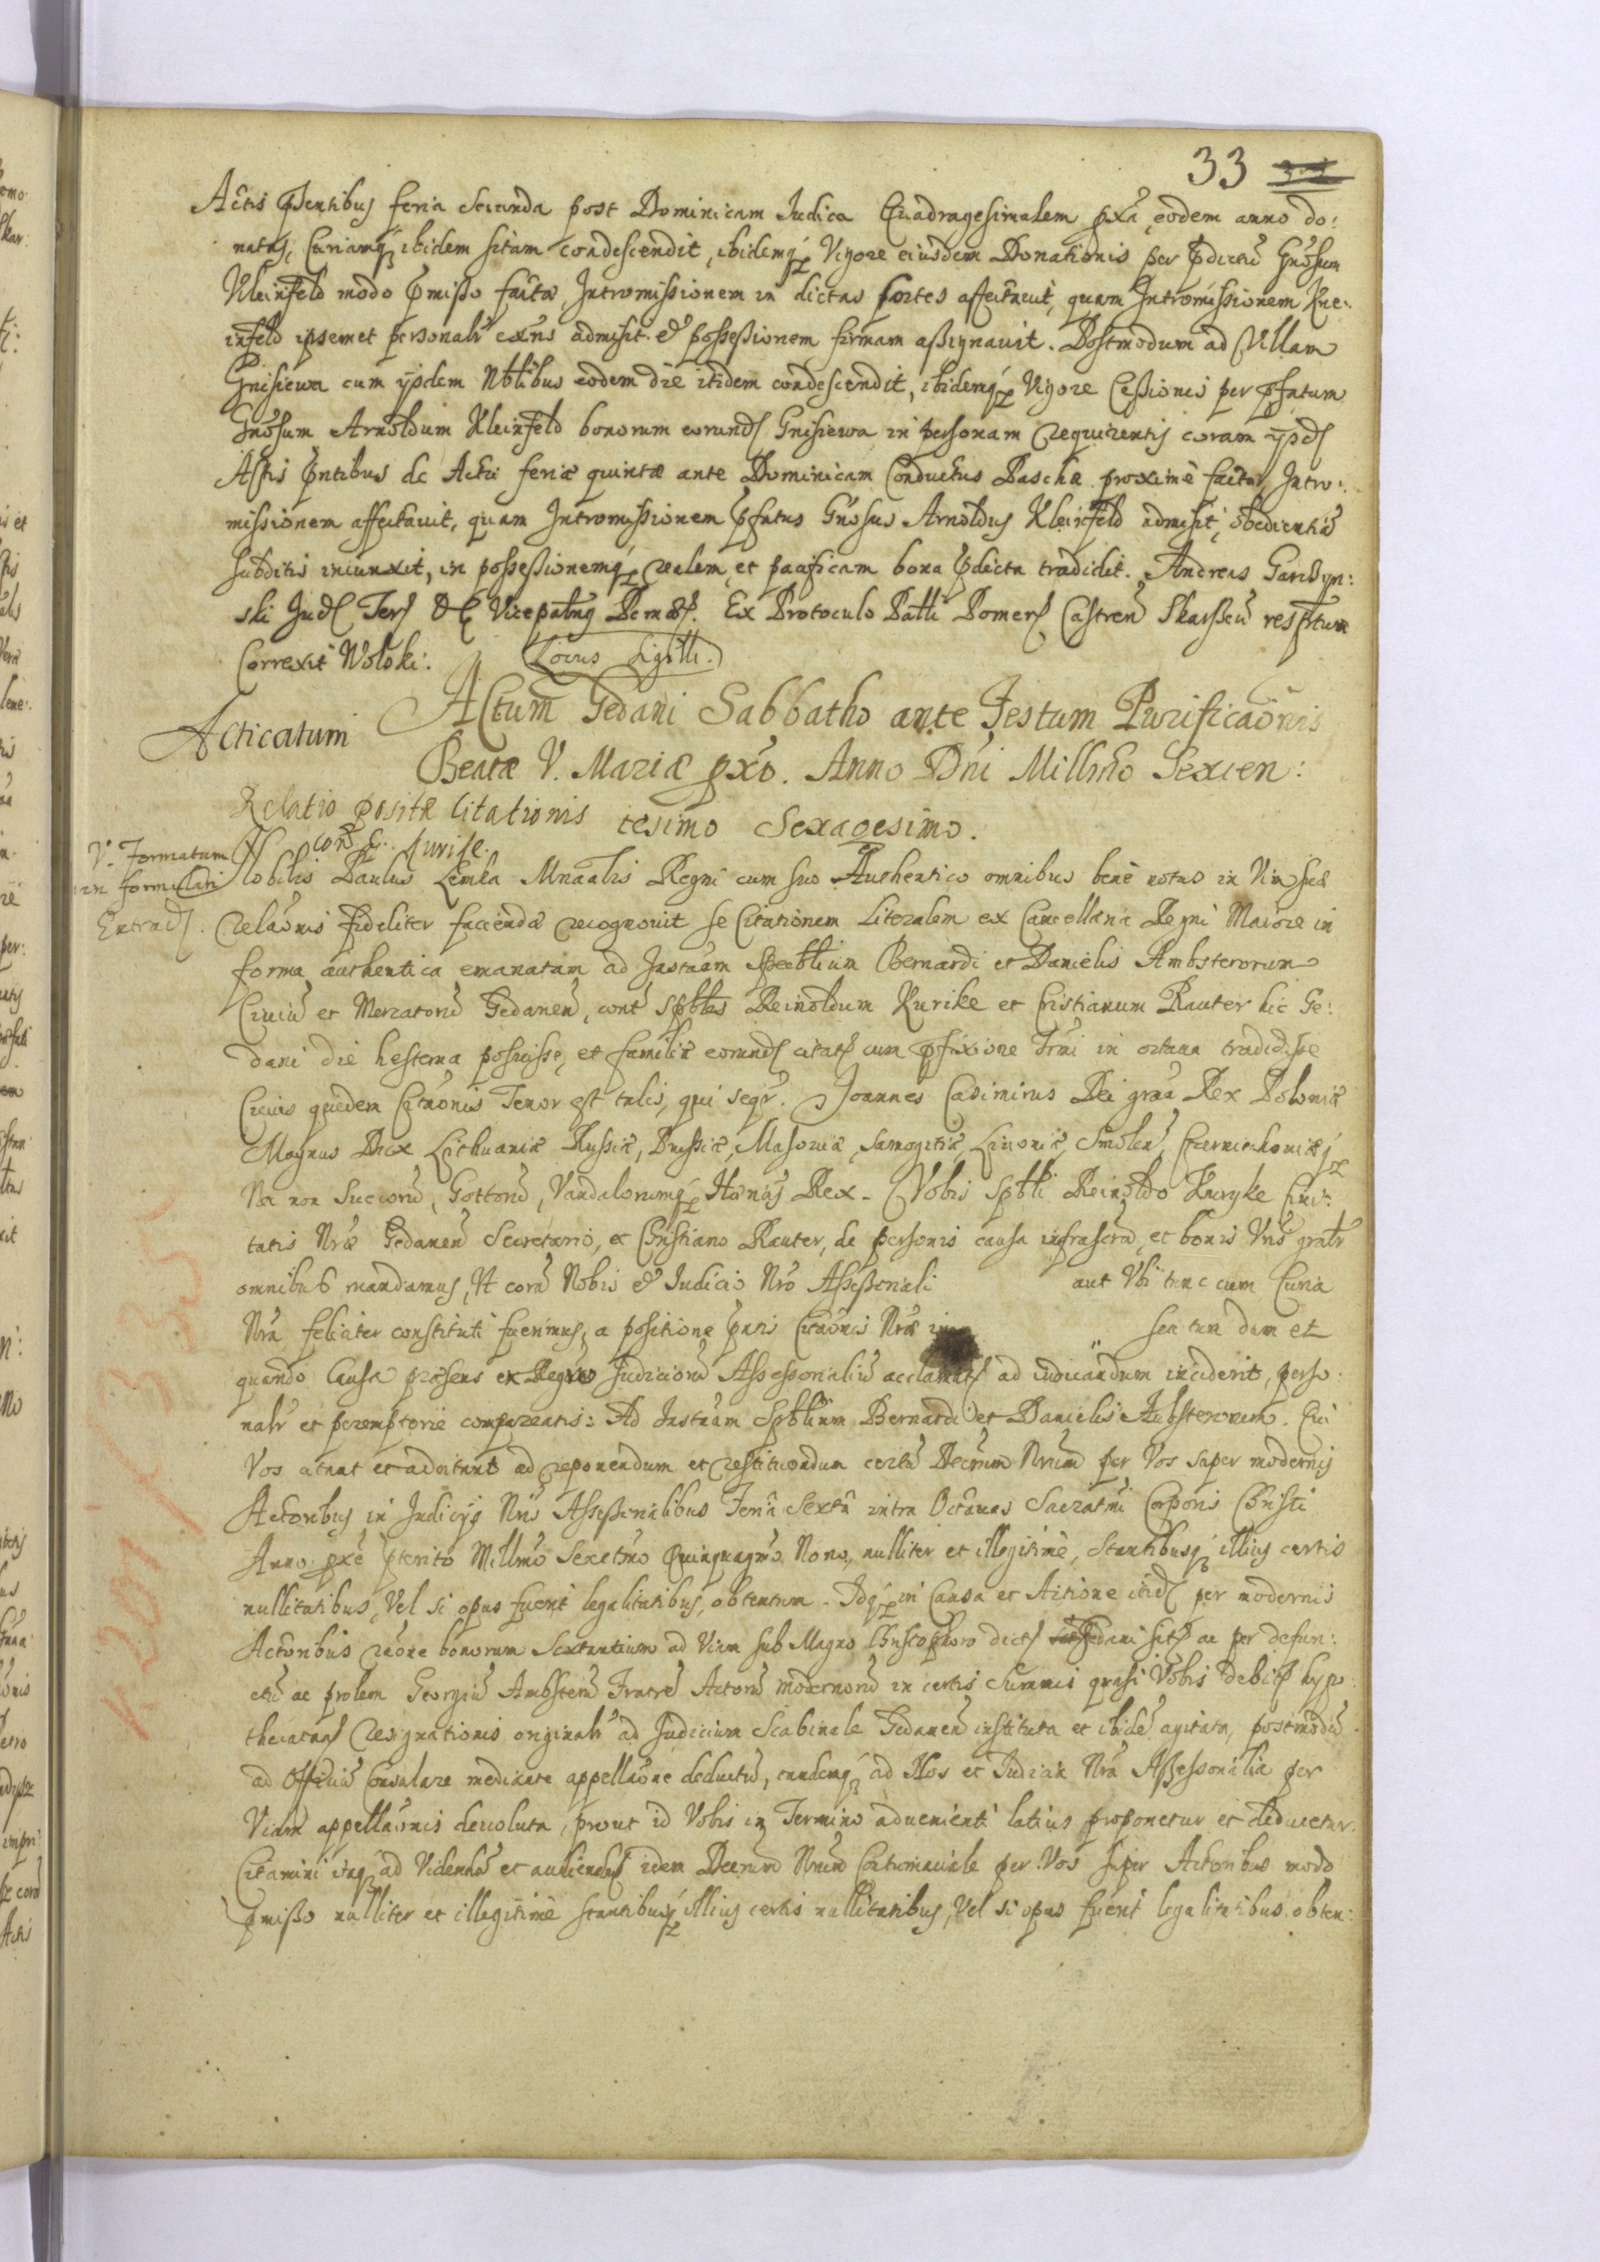 33
Actis psentibus feria Secunda post Dominicam Judica Quadragesimalem pxa, eodem anno do:
natas, Curiamq ibidem sitam condescendit, ibidemq Vigore eiusdem Donationis per pdictu Gnosum
Kleinfeld modo pmisso factae Intromissionem in dictas sortes affectavit, quam Intromissionem Kle:
infeld ipsemet personalr exns admisit & possessionem firmam assignavit. Postmodum ad Villam
Gnisiewa cum ijsdem Nblibus eodem die itidem condescendit, ibidemq Vigore Cessionis per pfatum
Gnosum Arnoldum Kleinfeld bonorum eorund Gnisiewa in personam requirentis coram ijsd
Actis pntibus de Actu feriae quintae ante Dominicam Conductus Paschae proxime factae, Intro:
missionem affectavit, quam Intromissionem pfatus Gnosus Arnoldus Kleinfeld admisit, obedientia
subditis iniunxit, in possessionemq realem et pacificam bona pdicta tradidit. Andreas Garczyn:
ski Jud Ter & Vicepaltnus Pomer. Ex Protoculo Palti Pomer Castren Skarsseu resptum
Correxit Wolski: Locus Sigilli.
Acticatum
Actum Gedani Sabbatho ante Festum Purificaonis
Beatae V. Mariae pxo. Anno Dni Millmo Sexcen:
tesimo Sexagesimo.
Relatio positae Citationis
con G. Kurike.
V. Formatum
in formulari
Extrad.
Nobilis Paulus Lemka Mnralis Regni cum suo Authentico omnibus bene notus in Vim suae
relaonis fideliter faciendae recognovit se Citationem Literalem ex Cancellaria Regni Maiore in
forma authentica emanatam ad Instnam Spectblium Bernardi et Danielis Ambsterorum
Civiu et Mercatoru Gedanen, cont Spbles Reinoldum Kurike et Cristianum Rauter hic Ge:
dani die hesterna posuisse, et familiae eorund citat cum pfixione Trni in octava tradidisse
Cuius quidem Citaonis Tenor est talis, qui seqr. Joannes Casimirus Dei graa Rex Poloniae
Magnus Dux Lithuaniae Russiae, Prussiae, Masoviae, Samogitiae, Livoniae, Smolen, Czerniechoviaeq
Nec non Suecoru, Gottoru, Vandalorumq Haerius Rex. Vobis Spbli Reinoldo Kuryke Civi:
tatis Nrae Gedanen Secretario, et Christiano Rauter, de personis causa infrascra, et bonis Vris gralr
omnibus mandamus, Ut cora Nobis & Judicio Nro Assessoriali aut Ubi tunc cum Curia
Nra feliciter constituti fuerimus, a positione pntis Citaonis Nrae in sea tan dem et
quando Causa praesens ex Regro Judicioru Assessorialiu acclamat ad iudicandum inciderit, perso:
nalr et peremptorie compareatis: Ad Instnam Spblium Bernardi et Danielis Ambsterorum. Qui
Vos citant et adcitant ad reponendum et restituendum certu Decrum Nrum per Vos super modernis
Actoribus in Judicijs Nris Assessorialibus Feria Sexta intra Octavas Sacratmi Corporis Christi
Anno pxe pterito Millmo Sexctmo Quinquagmo Nono, nulliter et illegitime, stantibusq illius certis
nullitatibus, Vel si opus fuerit legalitatibus, obtentum. Idq in Causa et Actione itid per modernis
Actoribus raone bonorum Sextantium ad Viam sub Magno Christophoro dict Gedani sit ac per defun:
ctu ac prolem Georgiu Ambsteru Fratre Actoru modernoru in certis Summis quasi Vobis debit hypo:
thecatas resignationis originalr ad Judicium Scabinale Gedanen instituta et ibide agitata, postmodu
ad Officiu Consulare mediante appellaone deductu, tandemq ad Nos et Judicia Nra Assessorialia per
Viam appellaonis devoluta, prout id Vobis in Termino advenienti latius proponetur et deducetur.
Citamini itaq ad Videndu et audiendu idem Decrum Nrum Contumaciale per Vos super Actoribus modo
pmisso nulliter et illegitime stantibusq illius certis nullitatibus, Vel si opus fuerit legalitatibus obten: